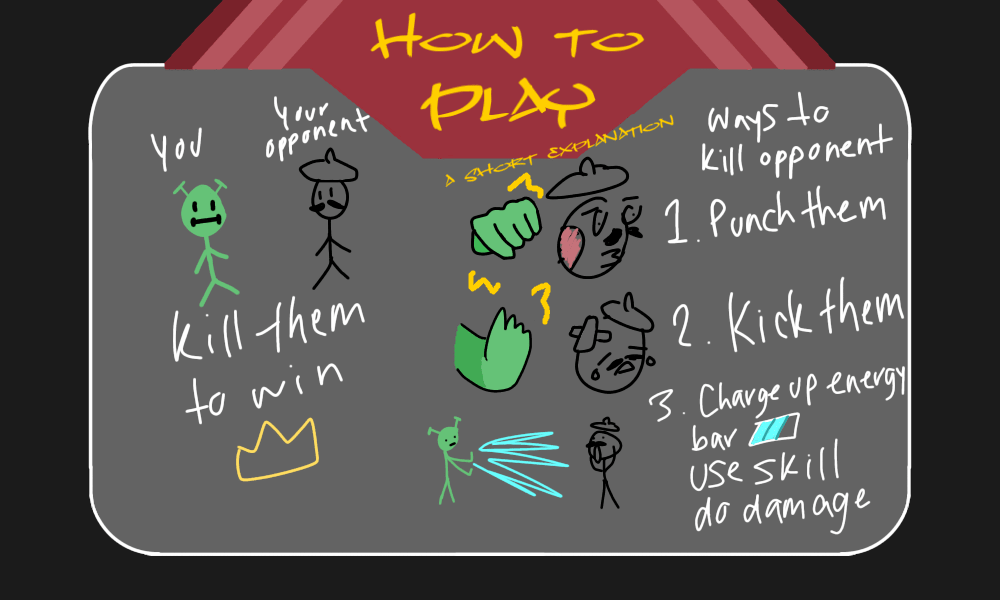 HOW TO
PLAY
A SHORT EXPLANATION
You
Your
opponent
kill them
to win
ways to
kill opponent
1. Punch them
2. Kick them
3. Charge up energy
bar
use skill
do damage